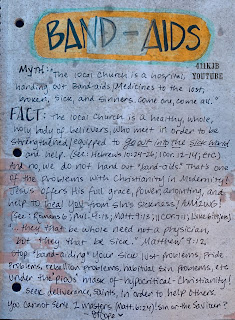 BAND-AIDS
411KJB
YOUTUBE
MYTH: "The local Church is a hospital,
handing out Band-aids/Medicines to the lost,
broken, sick, and sinners. Come one, come all."
FACT: The local Church is a healthy, whole,
holy body of believers, who meet in order to be
strengthened/equipped to go out into the sick world
and help. (See: Hebrews 10:24-26; 1 Cor. 12-14, etc.)
And no, we do not hand out "band-aids." That's one
of the problems with Christianity in Modernity!
Jesus offers His full grace, power, anointing, and
help to heal you from sin's sickness!
(See: Romans 6; Matt. 9:13;
"they that be whole need not a physician,
but they that be sick." Matthew 9:12.
Stop "band-aiding" your sick lust-problems, pride
Problems, rebellion problems, habitual sin problems, etc
under the mask of hypocritical-Christianity!
Seek deliverance, saints, in order to help others.
You Cannot Serve 2 masters (Matt. 6:24)! Sin or the Saviour?